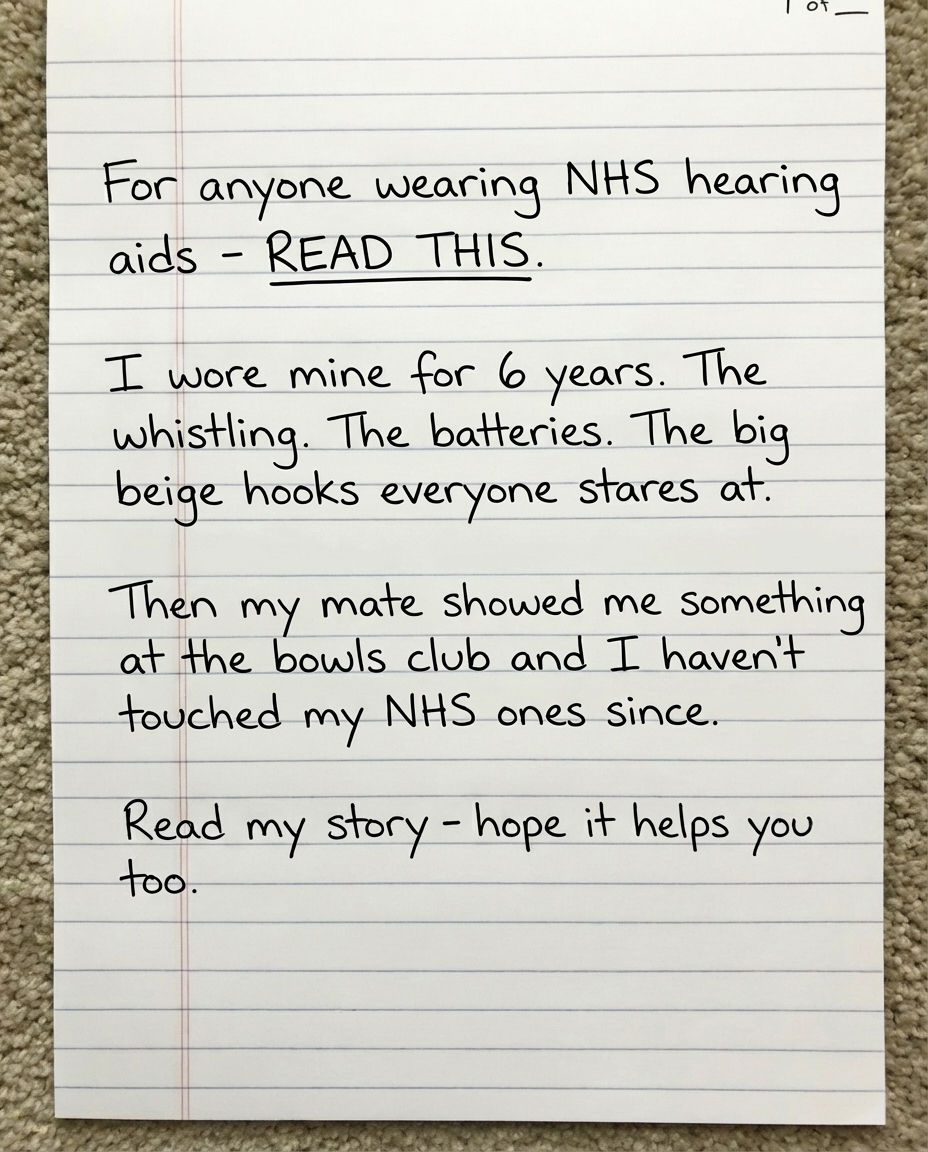 1 of __
For anyone wearing NHS hearing
aids - READ THIS.
I wore mine for 6 years. The
whistling. The batteries. The big
beige hooks everyone stares at.
Then my mate showed me something
at the bowls club and I haven't
touched my NHS ones since.
Read my story - hope it helps you
too.